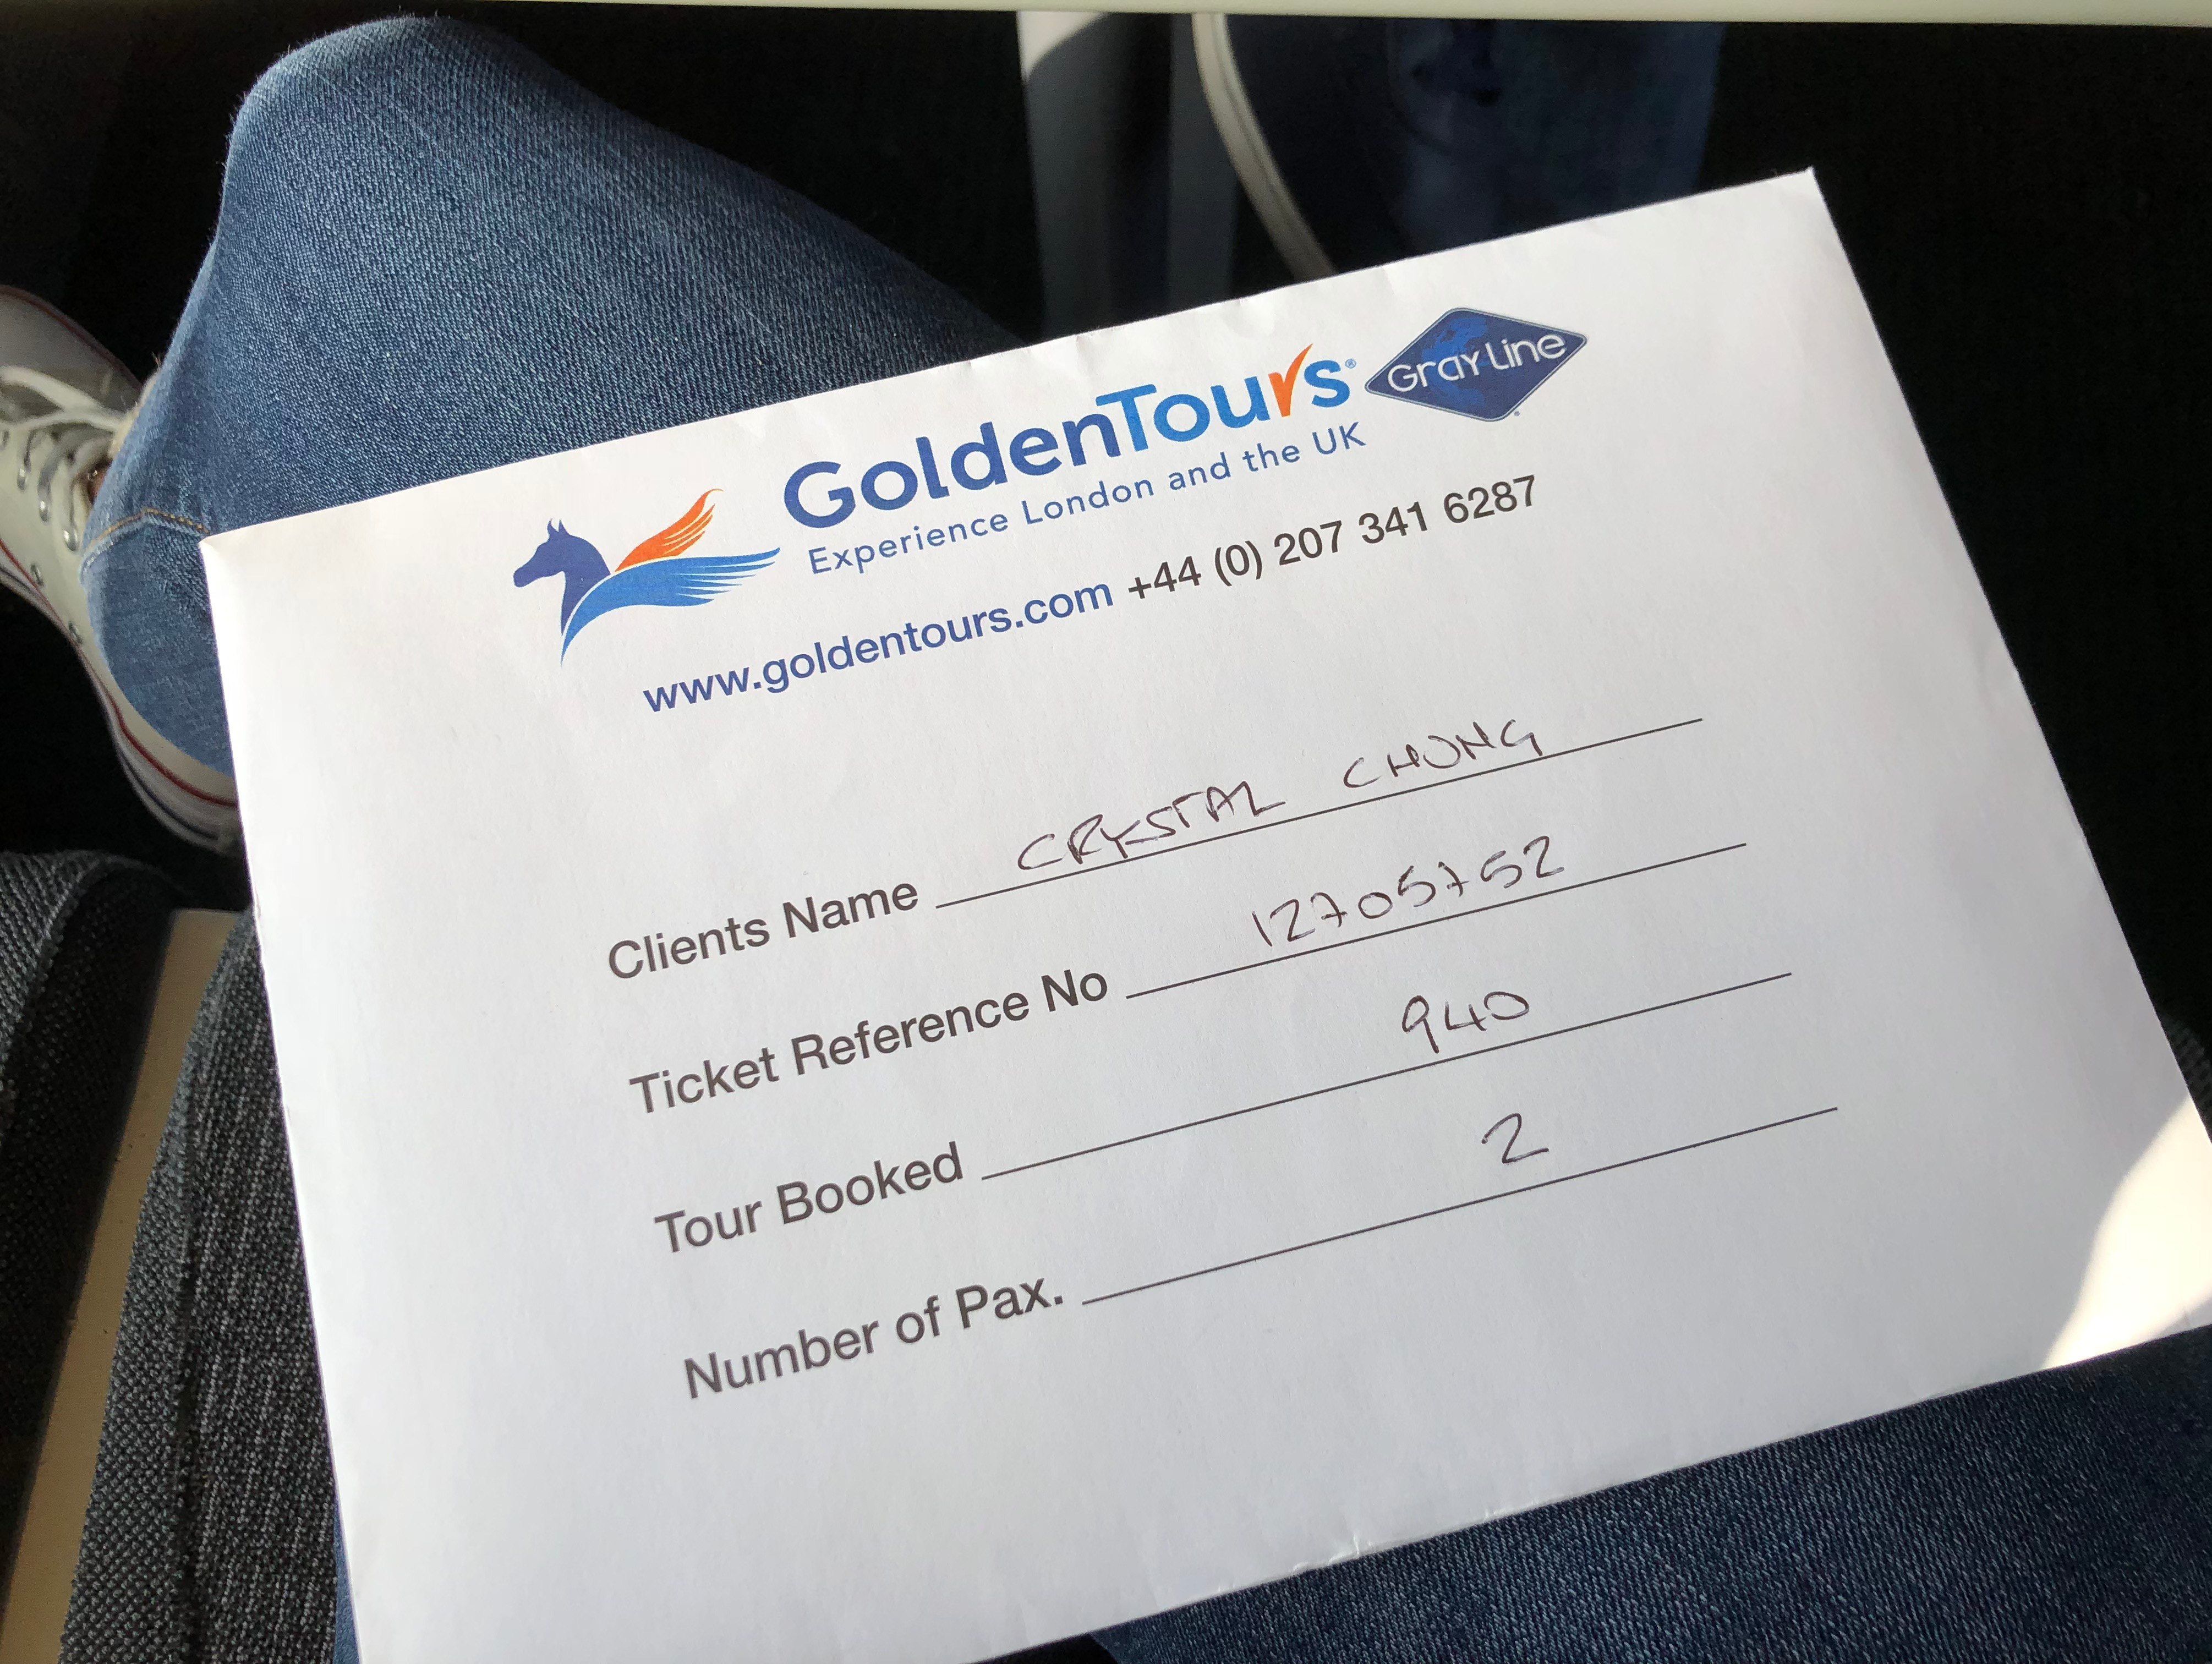 GoldenTours® Gray Line
Experience London and the UK
www.goldentours.com +44 (0) 207 341 6287
Clients Name CRYSTAL CHUNG
Ticket Reference No 12705752
Tour Booked 940
Number of Pax. 2